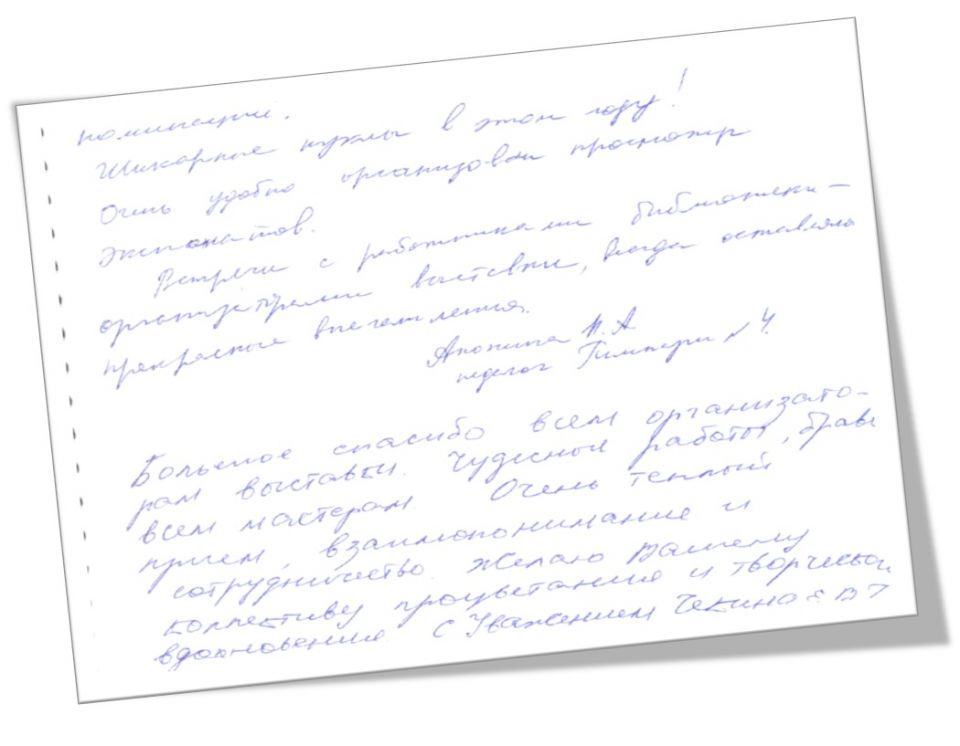 номинации.
Шикарные куклы в этом году!
Очень удобно организован просмотр
экспонатов.
Встречи с работниками библиотеки -
организаторами выставки, всегда оставляли
прекрасные впечатления.
Апонина Н. А
педагог Гимназии № 4.
Большое спасибо всем организато-
рам выставки. Чудесной работы, браво
всем мастерам Очень теплый
прием, взаимопонимание и
сотрудничество. Желаю Вашему
коллективу процветания и творческой
вдохновение С Уважением